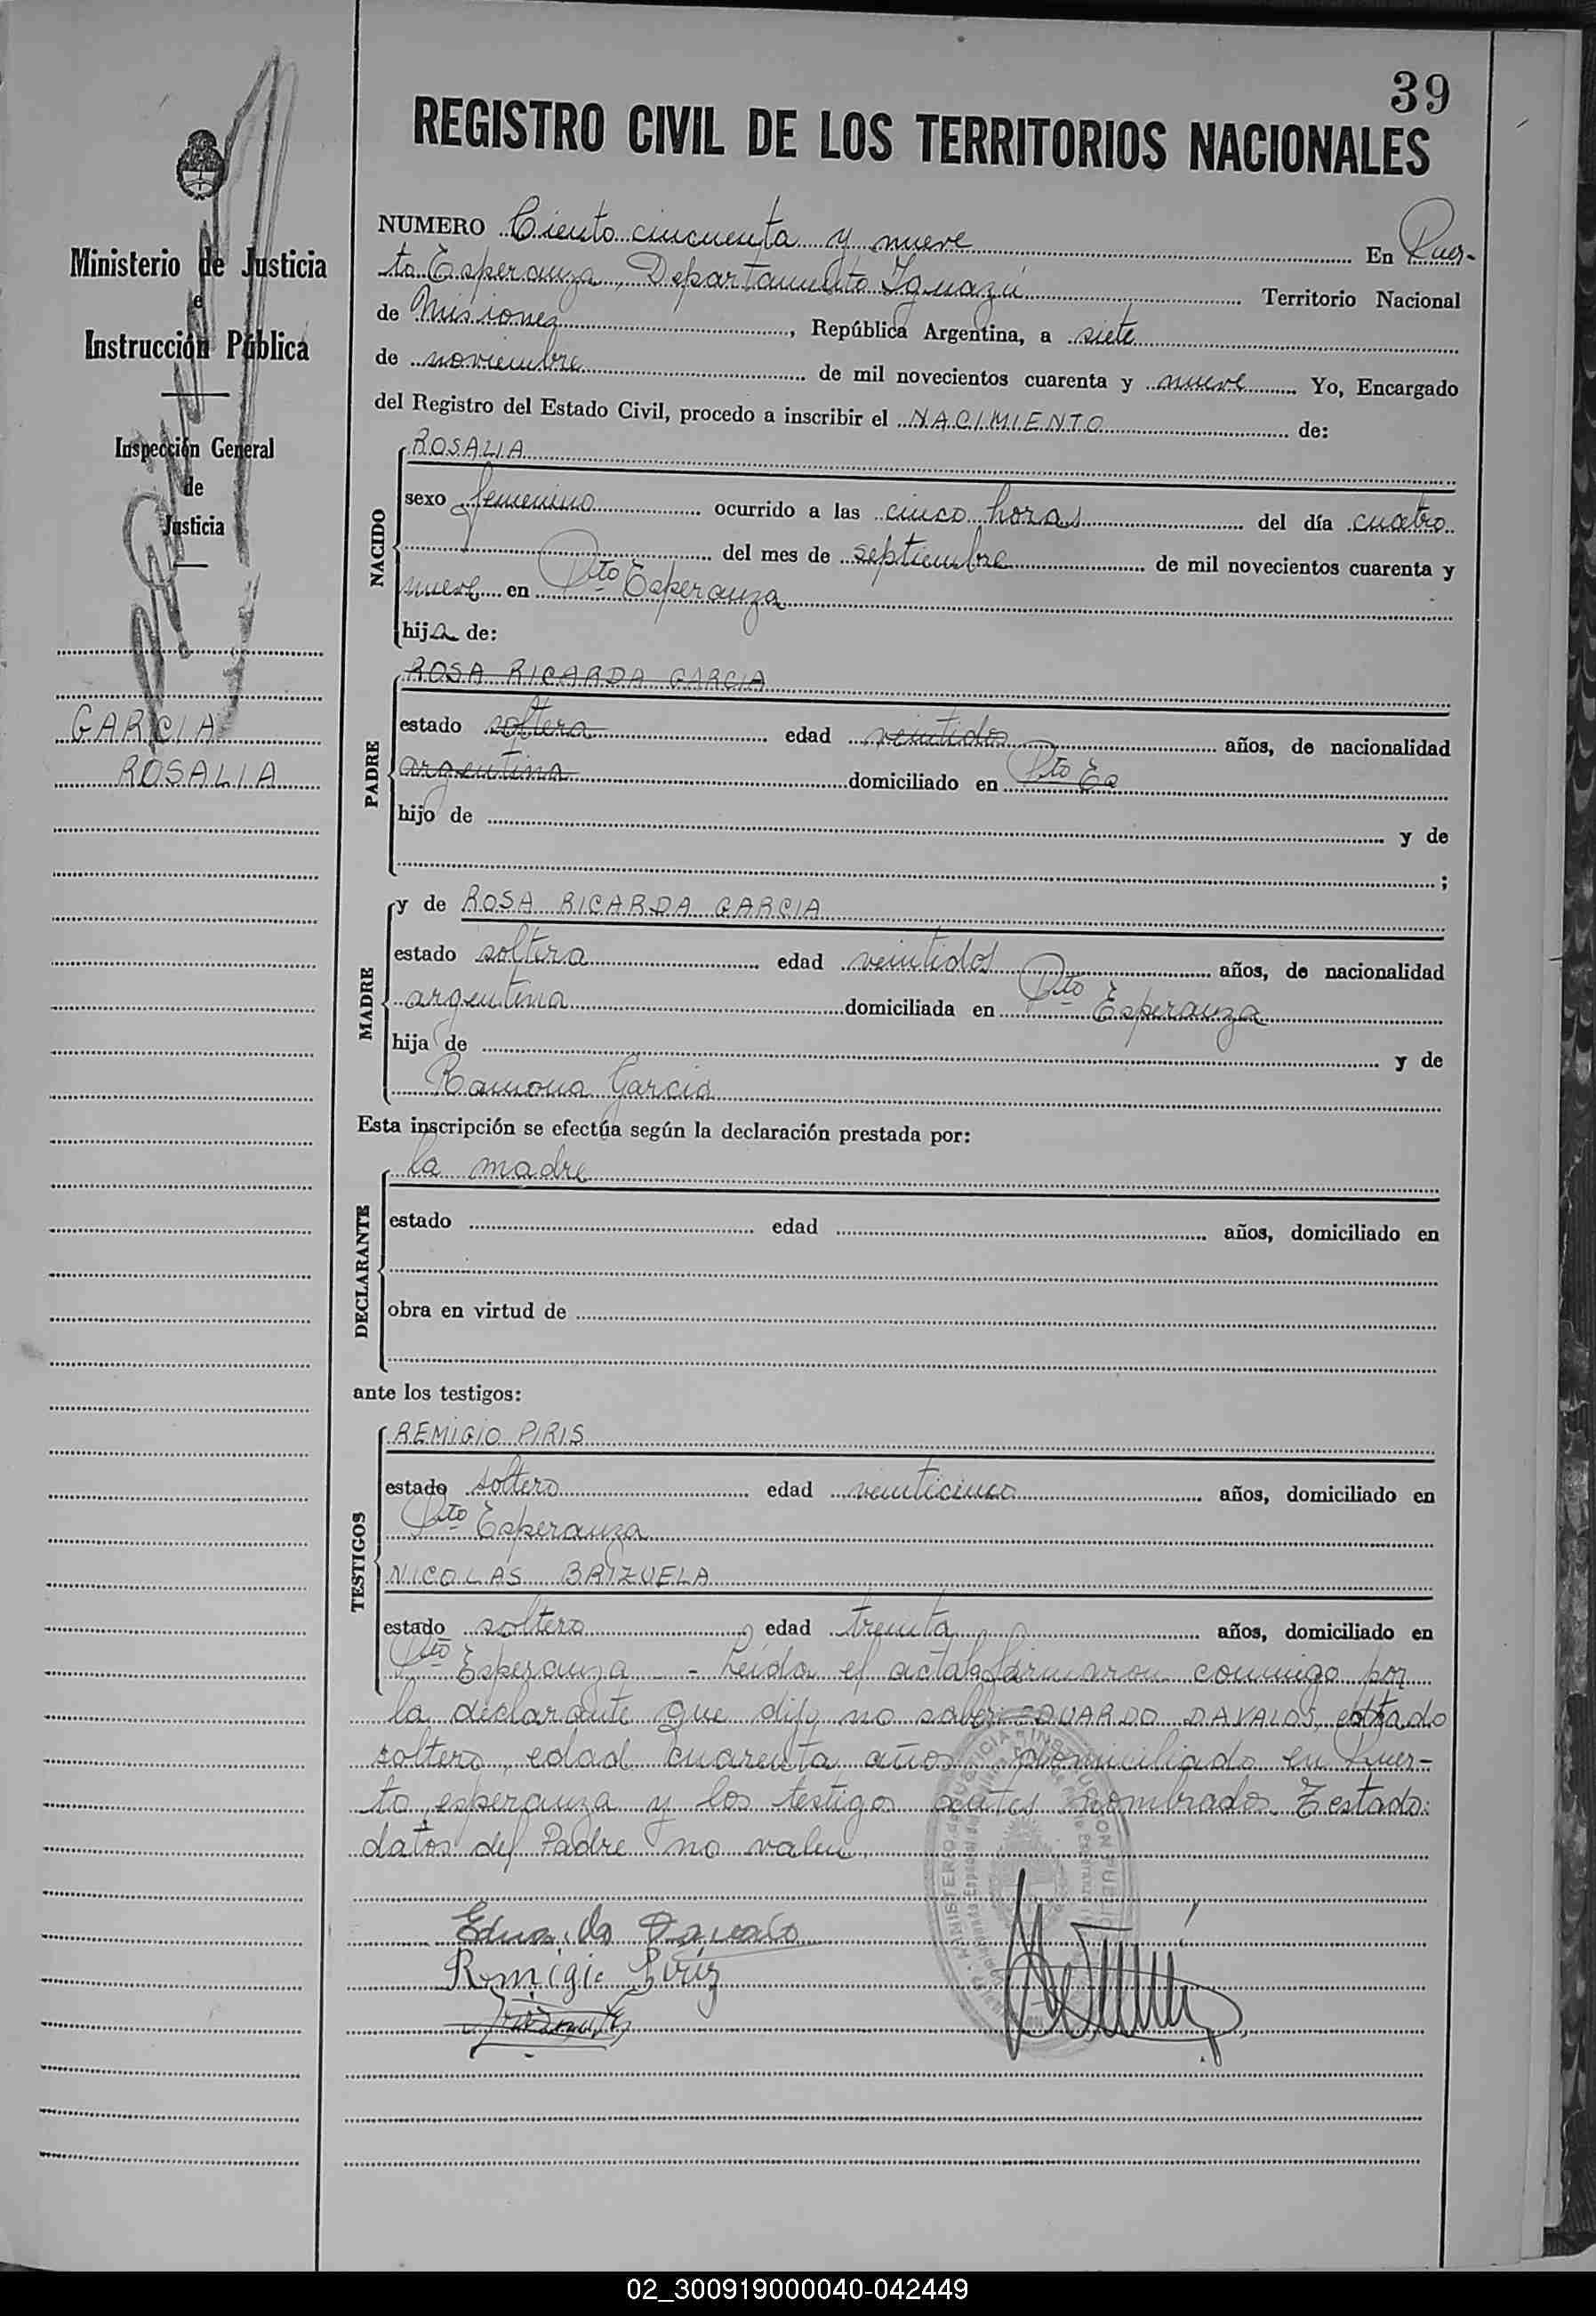 39
REGISTRO CIVIL DE LOS TERRITORIOS NACIONALES
Ministerio de Justicia
e
Instrucción Pública
Inspección General
de
Justicia
GARCIA
ROSALIA
NUMERO Ciento cincuenta y nueve En Puer-
to Esperanza, Departamento Iguazú Territorio Nacional
de Misiones, República Argentina, a siete
de noviembre de mil novecientos cuarenta y nueve Yo, Encargado
del Registro del Estado Civil, procedo a inscribir el NACIMIENTO de:
NACIDO
ROSALIA
sexo femenino ocurrido a las cinco horas del día cuatro
del mes de septiembre de mil novecientos cuarenta y
nueve en Pto Esperanza
hija de:
PADRE
ROSA RICARDA GARCIA
estado soltera edad veintidos años, de nacionalidad
argentina domiciliado en Pto Es
hijo de y de
;
MADRE
y de ROSA RICARDA GARCIA
estado soltera edad veintidos años, de nacionalidad
argentina domiciliada en Pto Esperanza
hija de y de
Ramona Garcia
Esta inscripción se efectúa según la declaración prestada por:
DECLARANTE
la madre
estado edad años, domiciliado en
obra en virtud de
ante los testigos:
TESTIGOS
REMIGIO PIRIS
estado soltero edad veinticinco años, domiciliado en
Pto Esperanza
NICOLAS BRIZUELA
estado soltero edad treinta años, domiciliado en
Pto Esperanza - Leida el acta la firmaron conmigo por
la declarante que dijo no saber EDUARDO DAVALOS, estado
soltero, edad cuarenta años, domiciliado en Puer-
to esperanza y los testigos antes nombrados. Testado:
datos del Padre no valen.
Eduardo Davalo
Remigio Piriz
02_300919000040-042449